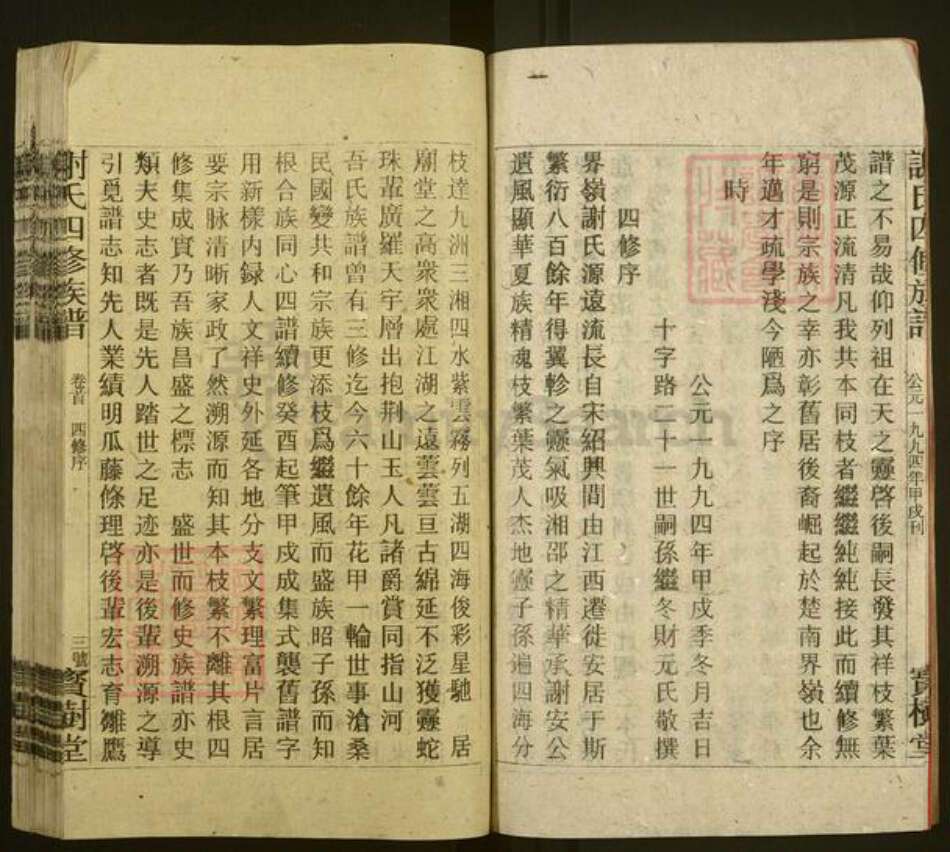 譜之不易哉仰列祖在天之靈啓後嗣長發其祥枝繁葉
茂源正流清凡我共本同枝者繼繼純純接此而續修無
窮是則宗族之幸亦彰舊居後裔崛起於楚南界嶺也余
年邁才疏學淺今陋爲之序
時
公元一九九四年甲戌季冬月吉日
十字路二十一世嗣孫繼冬財元氏敬撰
四修序
界嶺謝氏源遠流長自宋紹興間由江西遷徙安居于斯
繁衍八百餘年得翼軫之靈氣吸湘邵之精華承謝安公
遺風顯華夏族精魂枝繁葉茂人杰地靈子孫遍四海分
公元一九九四年甲戌刊
枝達九洲三湘四水紫雲霧列五湖四海俊彩星馳 居
廟堂之高衆衆處江湖之遠蕓蕓亘古綿延不泛獲靈蛇
珠輩廣羅天宇層出抱荆山玉人凡諸爵賞同指山河
吾氏族譜曾有三修迄今六十餘年花甲一輪世事滄桑
民國變共和宗族更添枝爲繼遺風而盛族昭子孫而知
根合族同心四譜續修癸酉起筆甲戌成集式襲舊譜字
用新樣内録人文祥史外延各地分支文繁理富片言居
要宗脉清晰家政了然溯源而知其本枝繁不離其根四
修集成實乃吾族昌盛之標志 盛世而修史族譜亦史
類夫史志者既是先人踏世之足迹亦是後輩溯源之導
引覓譜志知先人業績明瓜藤條理啓後輩宏志育雛鷹
謝氏四修族譜 卷首 四修序 三號 寶樹堂